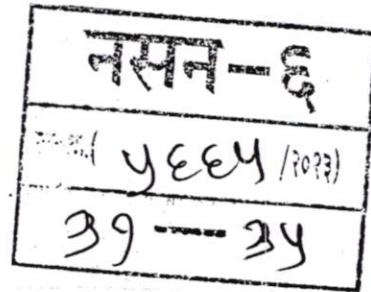 नसन-६
( ५६६५ /२०२३)
३१ — ३५